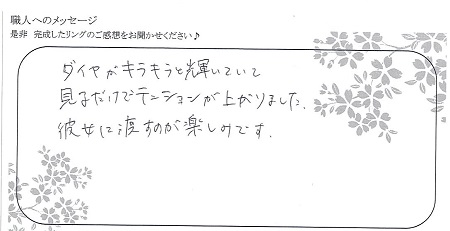 職人へのメッセージ
是非 完成したリングのご感想をお聞かせください♪
ダイヤがキラキラと輝いていて
見るだけでテンションが上がりました.
彼女に渡すのが楽しみです.